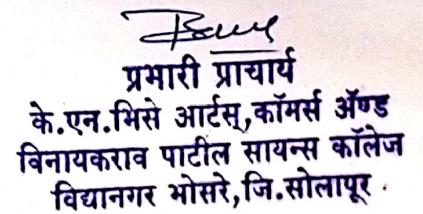 प्रभारी प्राचार्य
के.एन.भिसे आर्टस्,कॉमर्स ॲण्ड
विनायकराव पाटील सायन्स कॉलेज
विद्यानगर भोसरे,जि.सोलापूर.